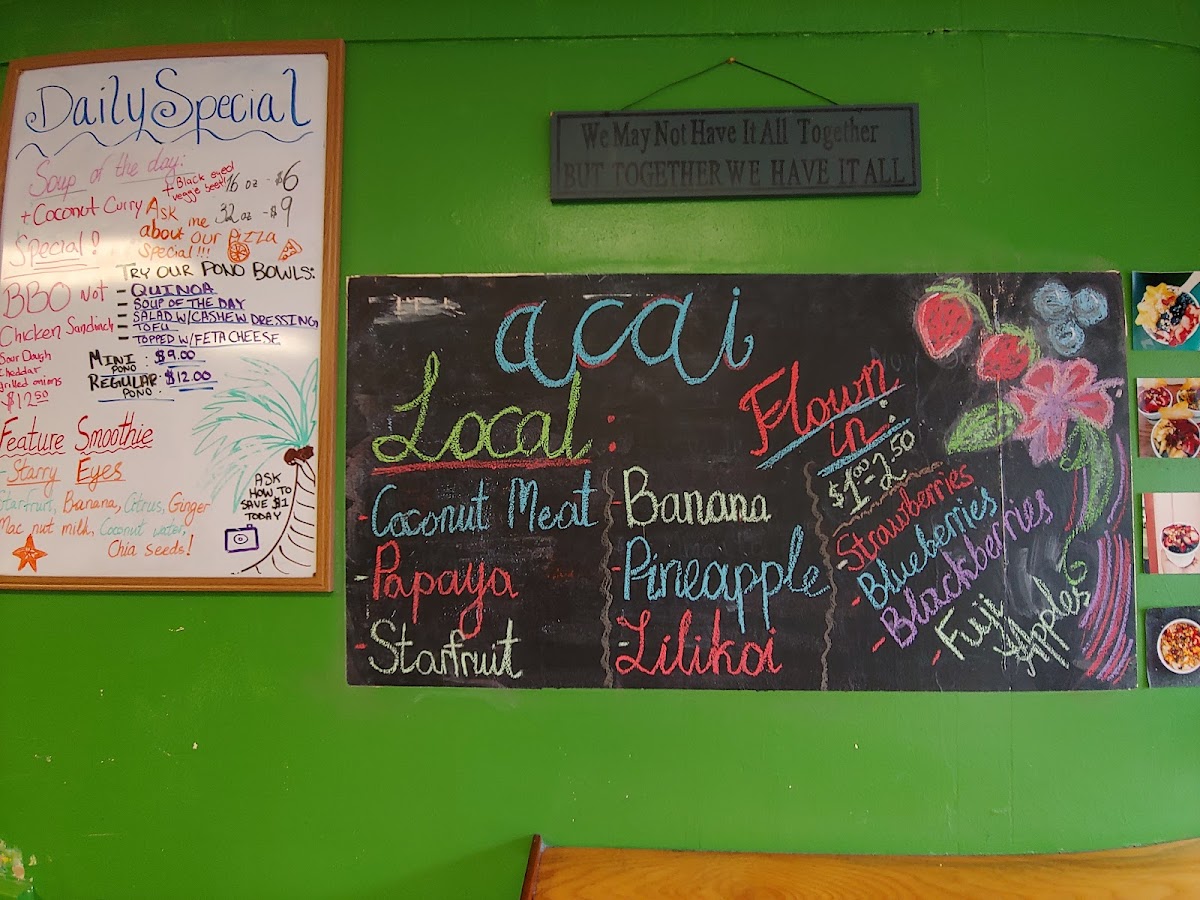 Daily Special
Soup of the day:
+ Black eyed
veggie beet!
16 oz - $6
+ Coconut Curry
32 oz - $9
Ask me
about our Pizza
Special!!!
Special!
BBQ Not
Chicken Sandinch
Sour Dough
Cheddar
grilled onions
$12.50
TRY OUR PONO BOWLS:
- QUINOA
- SOUP OF THE DAY
- SALAD W/CASHEW DRESSING
- TOFU
- TOPPED W/FETA CHEESE
MINI PONO : $9.00
REGULAR PONO : $12.00
Feature Smoothie
- Starry Eyes
Starfruit, Banana, Citrus, Ginger
Mac nut milk, Coconut water,
Chia seeds!
ASK
HOW TO
SAVE $1
TODAY
We May Not Have It All Together
BUT TOGETHER WE HAVE IT ALL
acai
Local :
- Coconut Meat
- Papaya
- Starfruit
- Banana
- Pineapple
- Lilikoi
Flown
in :
$1.00-2.50
- Strawberries
- Blueberries
- Blackberries
- Fuji
Apples